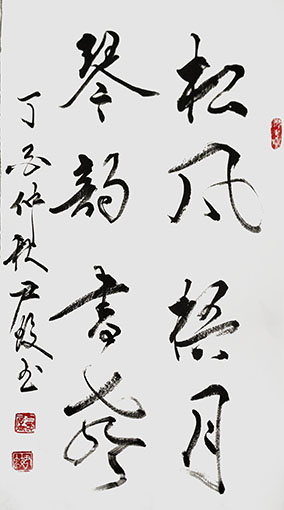 松风梧月
琴韵书声
丁酉仲秋尹毅书